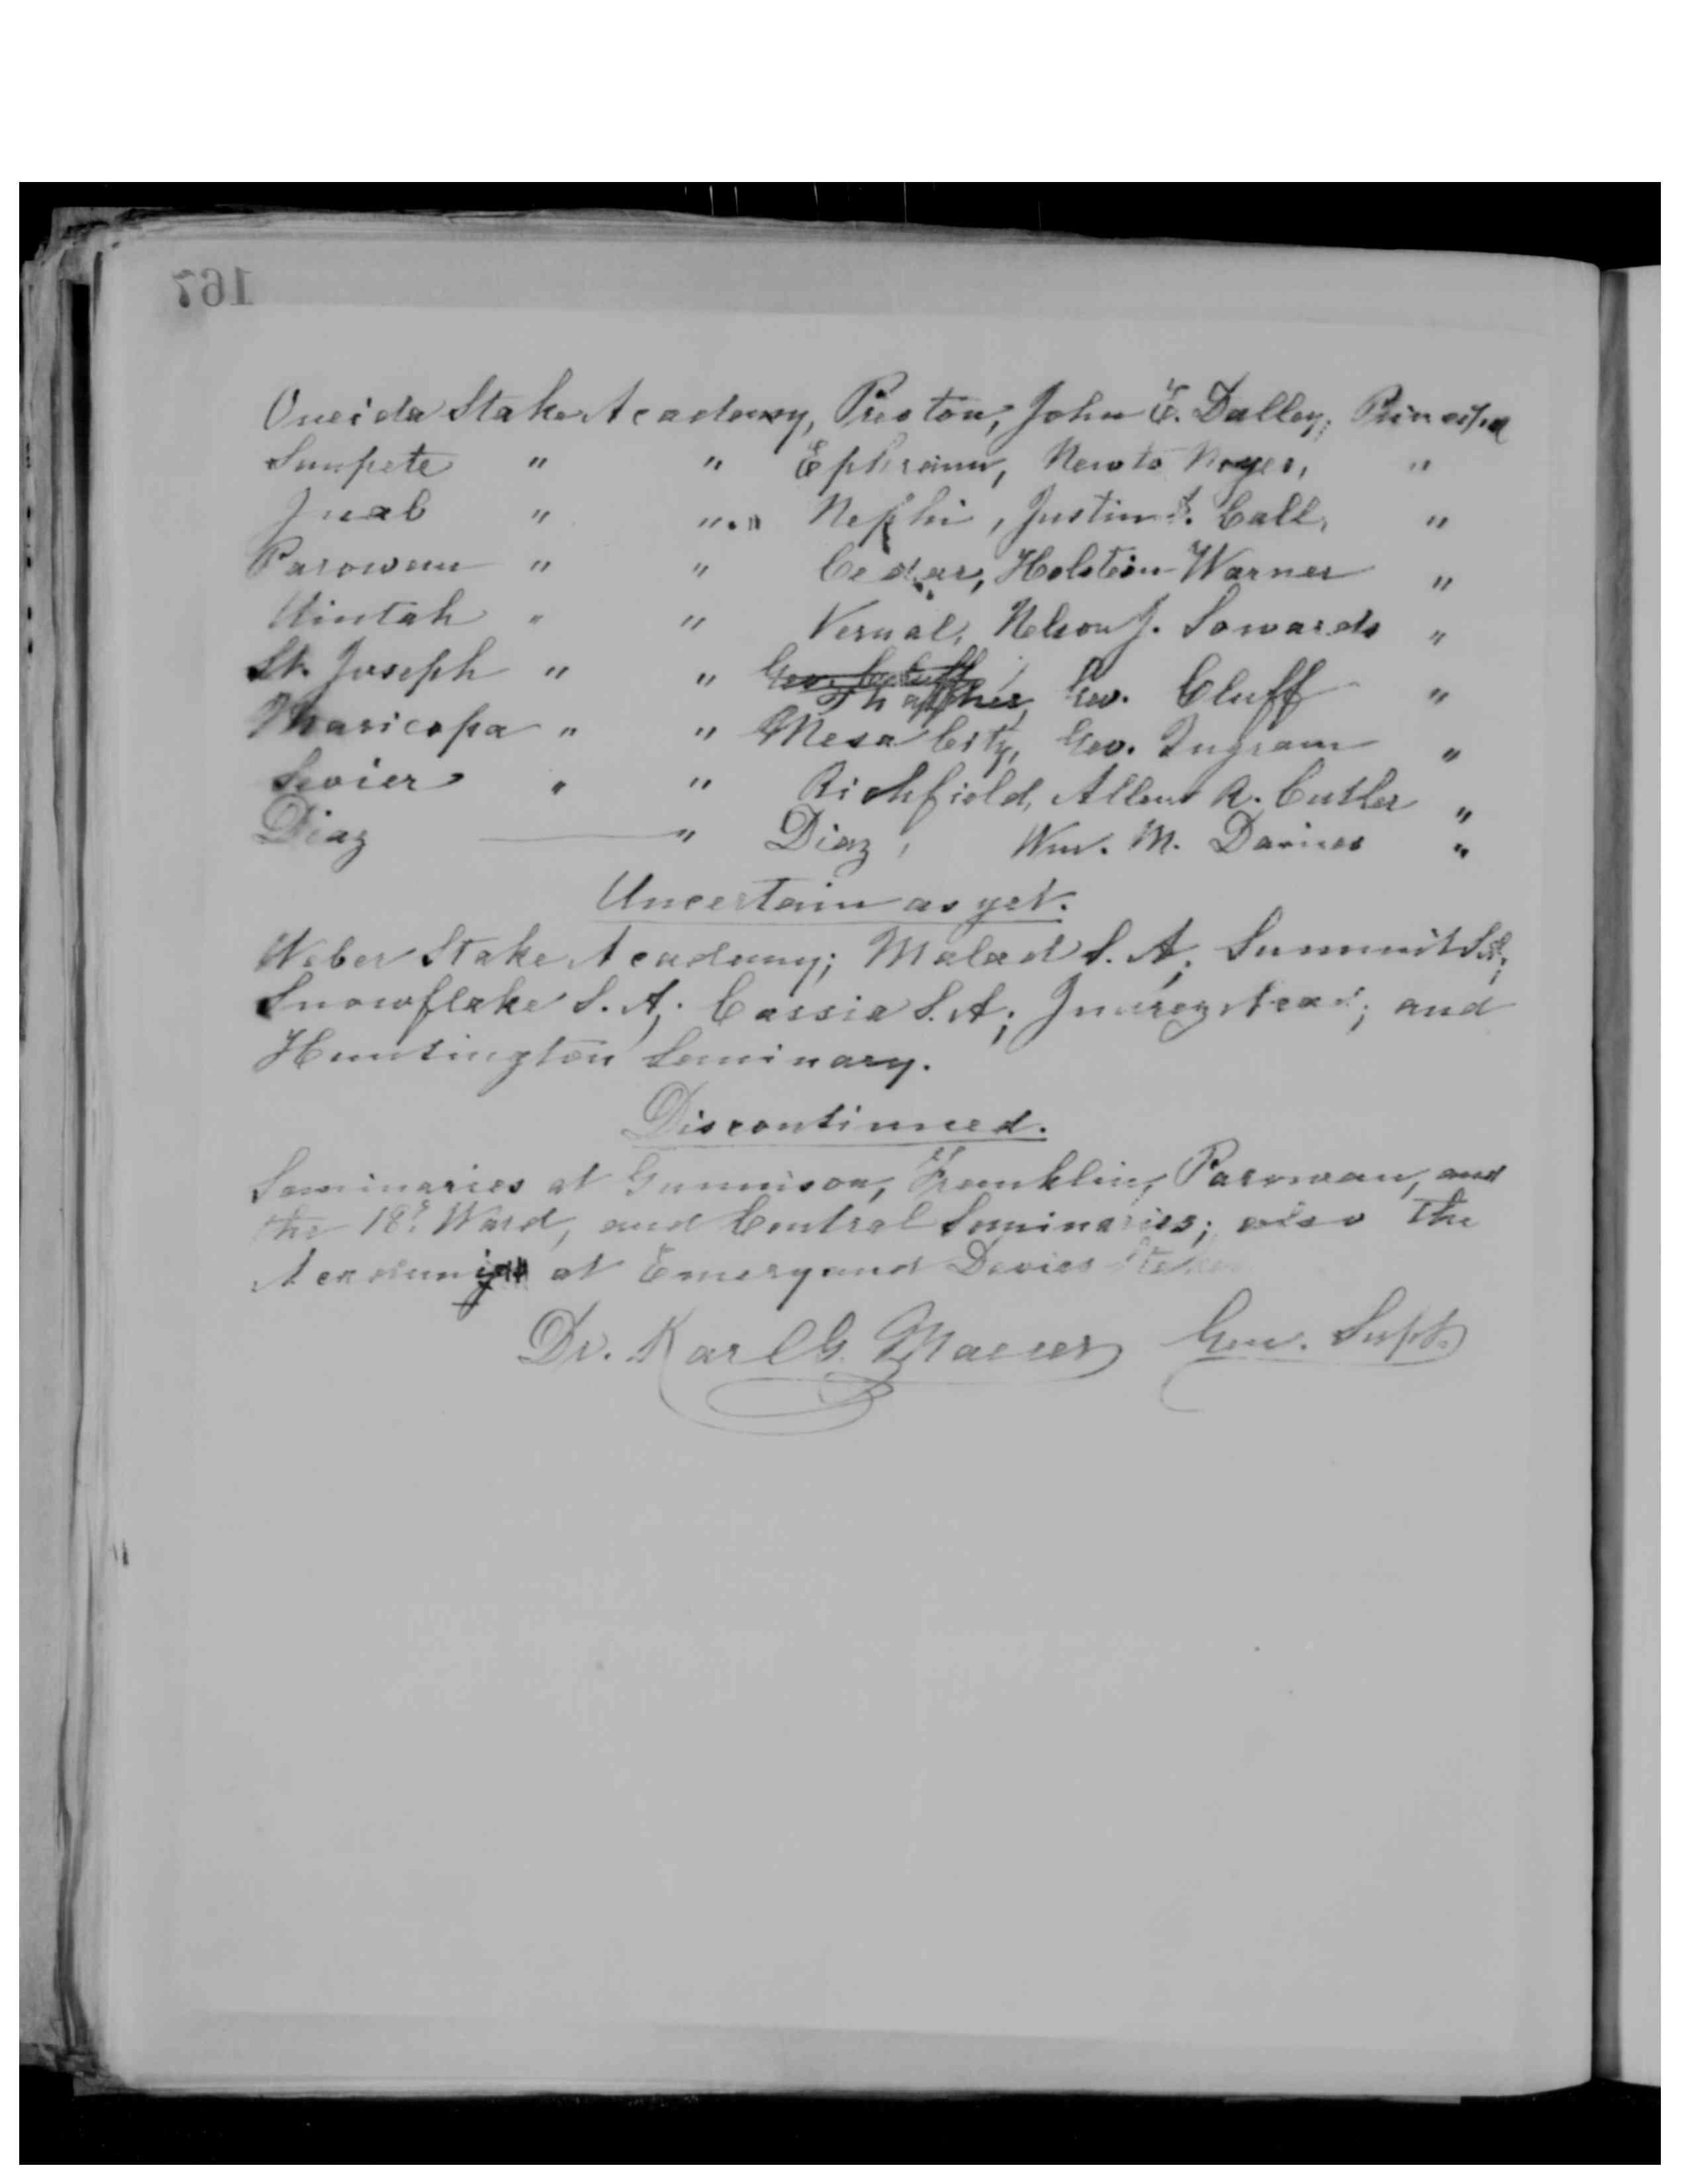 167
Oneida Stake Academy, Preston, John E. Dalley, Principal
Sanpete " " Ephraim, Newton Noyes, "
Juab " " " Nephi, Justin Call, "
Parowan " " Cedar, Holstein Warner "
Uintah " " Vernal, Nelson J. Sowards "
St. Joseph " " Thatcher, Geo. Cluff "
Maricopa " " Mesa City, Geo. Ingram "
Sevier " " Richfield, Allen R. Cutler "
Diaz — " Diaz, Wm. M. Daines "
Uncertain as yet.
Weber Stake Academy; Malad S. A; Summit
Snowflake S. A; Cassia S. A; Juarez Acad; and
Huntington Seminary.
Discontinued.
Seminaries at Gunnison, Franklin, Parowan, and
the 18. Ward, and Central Seminaries; also the
at Emery and Davies Stakes
Dr. Karl G. Maeser Gen. Supt.